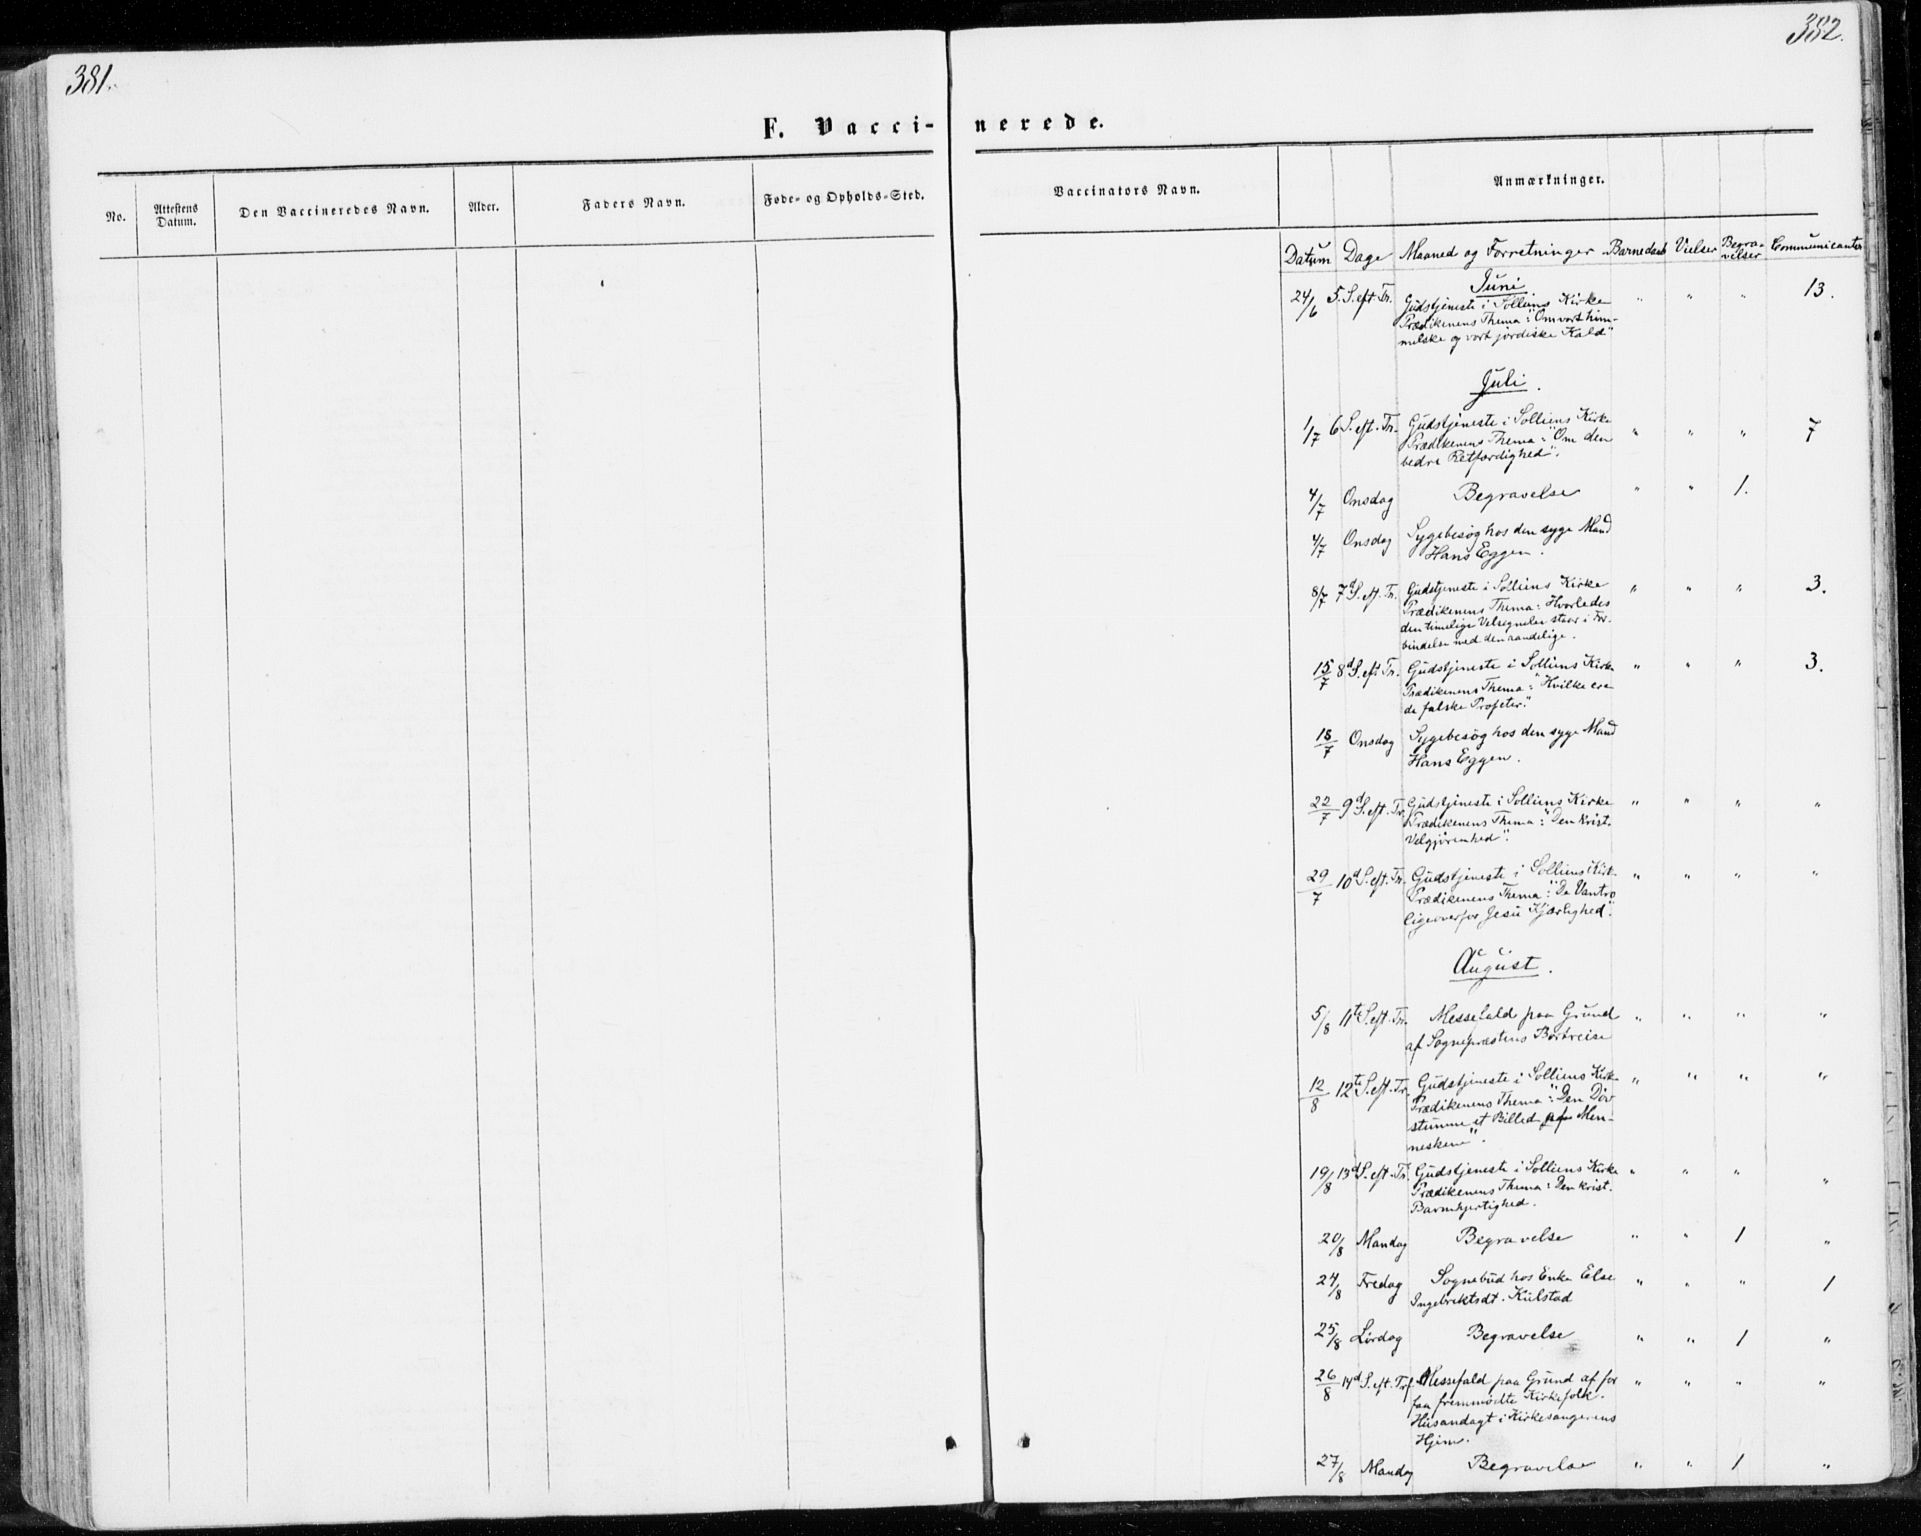 381.
382.
F. Vacci-
nerede.
No.
Attestens
Datum.
Den Vaccineredes Navn.
Alder.
Faders Navn.
Føde- og Opholds-Sted.
Vaccinators Navn.
Anmærkninger.
Datum Dage Maaned og Forretninger Barnedaab Vielser Begra-
velser Communicanter
Juni
24/6 5. S. eft. Tr. Gudstjeneste i Solliens Kirke " " " 13.
Prædikenens Thema: "Om vort him-
melske og vort jordiske Kald"
Juli.
1/7 6 S. eft. Tr. Gudstjeneste i Solliens Kirke
Prædikenens Thema: "Om den " " " 7
bedre Retfærdighed".
4/7 Onsdag Begravelse " " 1.
4/7 Onsdag Sygebesøg hos den syge Mand
Hans Eggen.
8/7 7d S. eft. Tr. Gudstjeneste i Solliens Kirke " " " 3.
Prædikenens Thema: Hvorledes
den timelige Velsignelse staar i For-
bindelse med den aandelige.
15/7 8d S. eft Tr. Gudstjeneste i Solliens Kirke " " " 3.
Prædikenens Thema: "Hvilke ere
de falske Profeter."
18/7 Onsdag Sygebesøg hos den syge Mand
Hans Eggen.
22/7 9d S. eft. Tr. Gudstjeneste i Solliens Kirke " " " "
Prædikenens Thema: "Den krist.
Velgjørenhed".
29/7 10d S. eft. Tr. Gudstjeneste i Solliens Kirk- " " " "
Prædikenens Thema: "De Vantro
ligeoverfor Jesu Kjærlighed".
August.
5/8 11te S. eft. Tr. Messefald paa Grund " " " "
af Sognepræstens Bortreise
12/8 12te S. eft. Tr. Gudstjeneste i Solliens Kirk- " " " "
Prædikenens Thema: "Den Døv
stumme et Billed paa Men-
neskene".
19/8 13d S. eft. Tr. Gudstjeneste i Solliens Kirke " " " "
Prædikenens Thema: Den krist.
Barmhjertighed.
20/8 Mandag Begravelse " " 1 "
24/8 Fredag Sognebud hos Enke Else " " " 1
Ingebrektsdt. Kulstad
25/8 Lørdag Begravelse " " 1 "
26/8 14d S. eft. Tr. Messefald paa Grund af for " " " "
faa fremmødte Kirkefolk.
Husandagt i Kirkesangerens
Hjem.
27/8 Mandag Begravelse " " 1 "